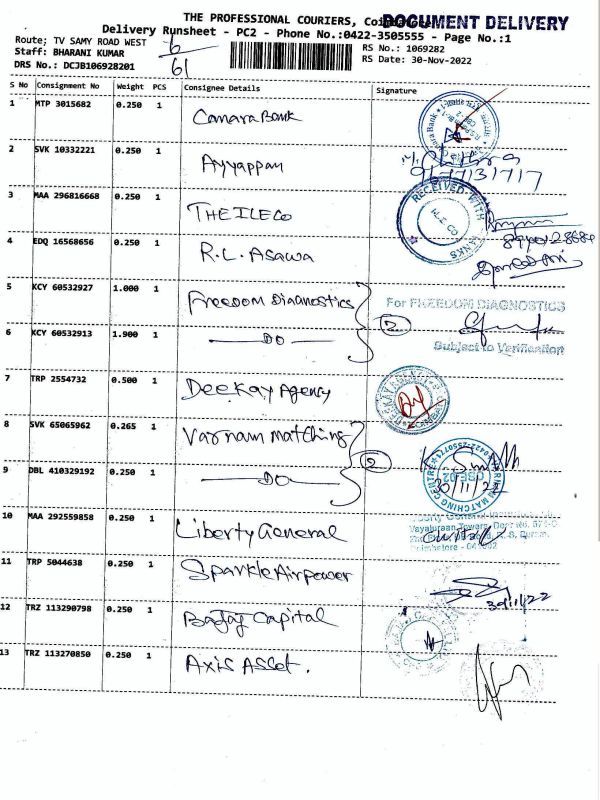 THE PROFESSIONAL COURIERS,
DOCUMENT DELIVERY
Delivery Runsheet - PC2 - Phone No.:0422-3505555 - Page No.:1
Route; TV SAMY ROAD WEST
6
RS No.: 1069282
Staff: BHARANI KUMAR
RS Date: 30-Nov-2022
DRS No.: DCJB106928201
61
S No Consignment No Weight PCS Consignee Details Signature
1 MTP 3015682 0.250 1 Canara Bank
2 SVK 10332221 0.250 1 Ayyappan
3 MAA 296816668 0.250 1 THE ILE Co
RECEIVED WITH THANKS
4 EDQ 16568656 0.250 1 R.L. Asawa
5 KCY 60532927 1.000 1 Freedom Diagnostics
For FREEDOM DIAGNOSTICS
2
6 KCY 60532913 1.900 1 DO
Subject to Verification
7 TRP 2554732 0.500 1 Deekay Agency
8 SVK 65065962 0.265 1 Varnam matching
2
9 DBL 410329192 0.250 1 DO
30/11/22
10 MAA 292559858 0.250 1 Liberty General
Coimbatore - 641002
11 TRP 5044638 0.250 1 Sparkle Airpower
30/11/22
12 TRZ 113290798 0.250 1 Bajaj Capital
13 TRZ 113270850 0.250 1 Axis Asset.